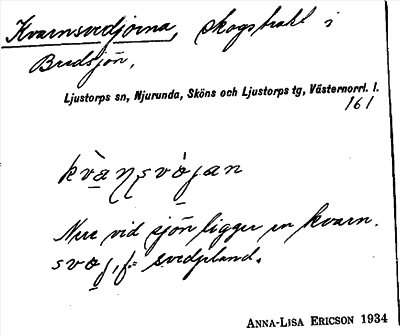 Kvarnsvedjorna, skogstrakt i
Bredsjön,
Ljustorps sn, Njurunda, Sköns och Ljustorps tg, Västernorrl. l.
161
kvàṇsvòjan
Nere vid sjön ligger en kvarn.
svoj, f. = svedjeland.
ANNA-LISA ERICSON 1934